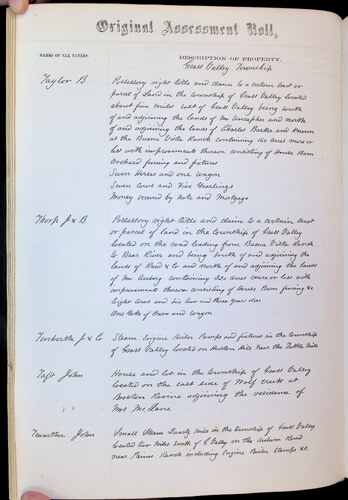 Original Assessment Roll,
NAMES OF TAX PAYERS.
DESCRIPTION OF PROPERTY.
Grass Valley Township
Taylor B
Possessory right title and claim to a certain tract or
parcel of Land in the township of Grass Valley located
about five miles East of Grass Valley being south
of and adjoining the lands of and north
of and adjoining the lands of Charles Barker and known
as the Buena Vista Ranch containing acres more or
less with improvements thereon consisting of House Barn
Orchard fencing and fixtures
Seven Horses and one wagon
Seven Cows and Five Yearlings
Money secured by Note and Mortgage
Thorp J & B
Possessory right title and claim to a certain tract
or parcel of land in the township of Grass Valley
located on the road leading from Buena Vista Ranch
to Bear River and being South of and adjoining the
lands of Reed & Co and north of and adjoining the lands
of Mr containing 320 acres more or less with
improvements thereon consisting of House Barn fencing &c
Eight cows and six two and three year olds
One Yoke of Oxen and wagon
J & Co
Steam Engine Boiler Pumps and fixtures in the township
of Grass Valley located on Hill near the Mill
Taft John
House and lot in the township of Grass Valley
located on the east side of Wolf creek at
Boston Ravine adjoining the residence of
Mrs McLane
" "
John
Small Steam Quartz Mill in the township of Grass Valley
located two miles South of G. Valley on the Auburn Road
near Ranch including Engine Boiler Stamps &c.